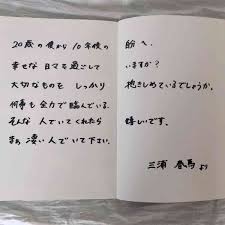 20歳の僕から10年後の へ.
幸せな日々を過ごして いますか?
大切なものを しっかり 抱きしめているでしょうか.
何事も全力で臨んでいる.
そんな人でいてくれたら 嬉しいです.
凄い人でいて下さい.
三浦 春馬 より